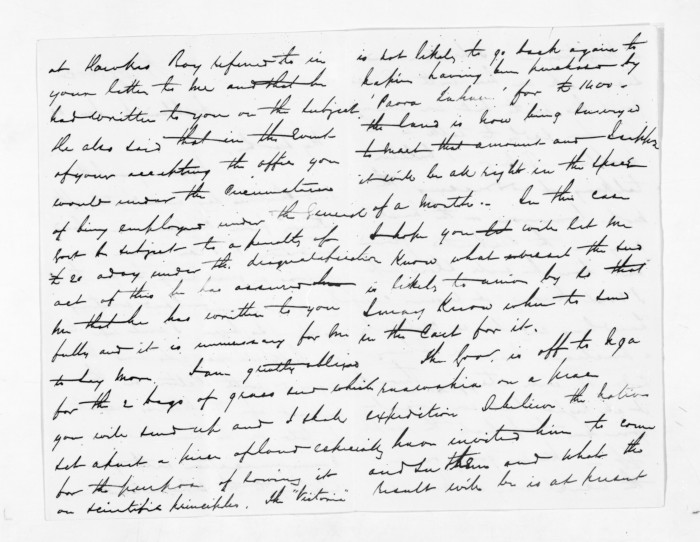 at Hawkes Bay referred to in
your letter to me and that he
had written to you on the subject.
He also said that in the event
of your accepting the office you
would under the circumstances
of being employed under the General
Govt be subject to a penalty of
£20 a day under the disqualification
act of this he has assured
me that he has written to you
fully and it is unnecessary for me
to say more. I am greatly obliged
for the 2 bags of grass seed which
you will send up and I shall
set about a piece of land especially
for the purpose of sowing it
on scientific principles. The "Victoria"
is not likely to go back again to
Napier having been purchased by
for £1400 -
the land is now being surveyed
to meet that amount and I suppose
it will be all right in the space
of a month. - In this case
I hope you will let me
know what interest the seed
is likely to arrive by so that
I may know when to send
in the Cart for it.
The Gov. is off to Nga
on a peace
expedition I believe the natives
have invited him to come
and see them and what the
result will be is at present